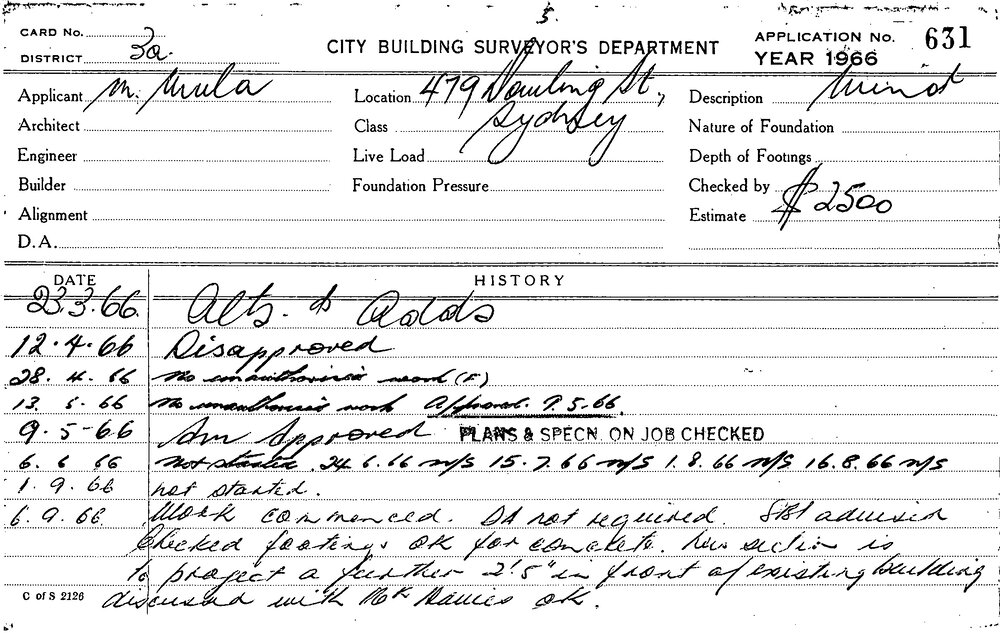 5.
CARD No.
DISTRICT 3a.
CITY BUILDING SURVEYOR'S DEPARTMENT
APPLICATION No. 631
YEAR 1966
Applicant M.
Location 479 Dowling St.,
Sydney
Description
Architect
Class
Nature of Foundation
Engineer
Live Load
Depth of Footings
Builder
Foundation Pressure
Checked by
Alignment
Estimate $2500
D.A.
DATE HISTORY
23.3.66. Alts. & Adds
12.4.66 Disapproved
28.4.66 No unauthorised work (F)
13.5.66 No unauthorised work Approved. 9.5.66.
9-5-66 Am Approved PLANS & SPECN. ON JOB CHECKED
6.6.66 Not started 24.6.66 n/S 15.7.66 n/S 1.8.66 n/S 16.8.66 n/S
1.9.66 not started.
6.9.66. Work commenced. DA not required. advised
Checked footings OK for concrete. New section is
to project a further 2'.5" in front of existing building
discussed with Mr Davies OK.
C of S 2126